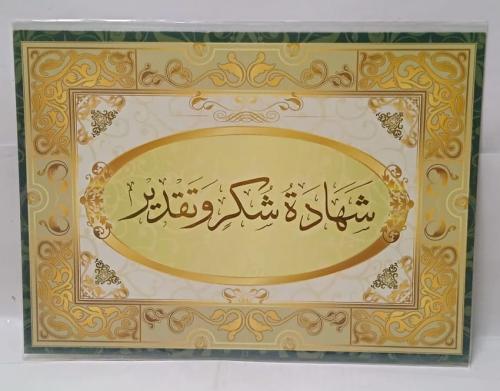 شَهَادَةُ شُكرٍ وَتقدِير